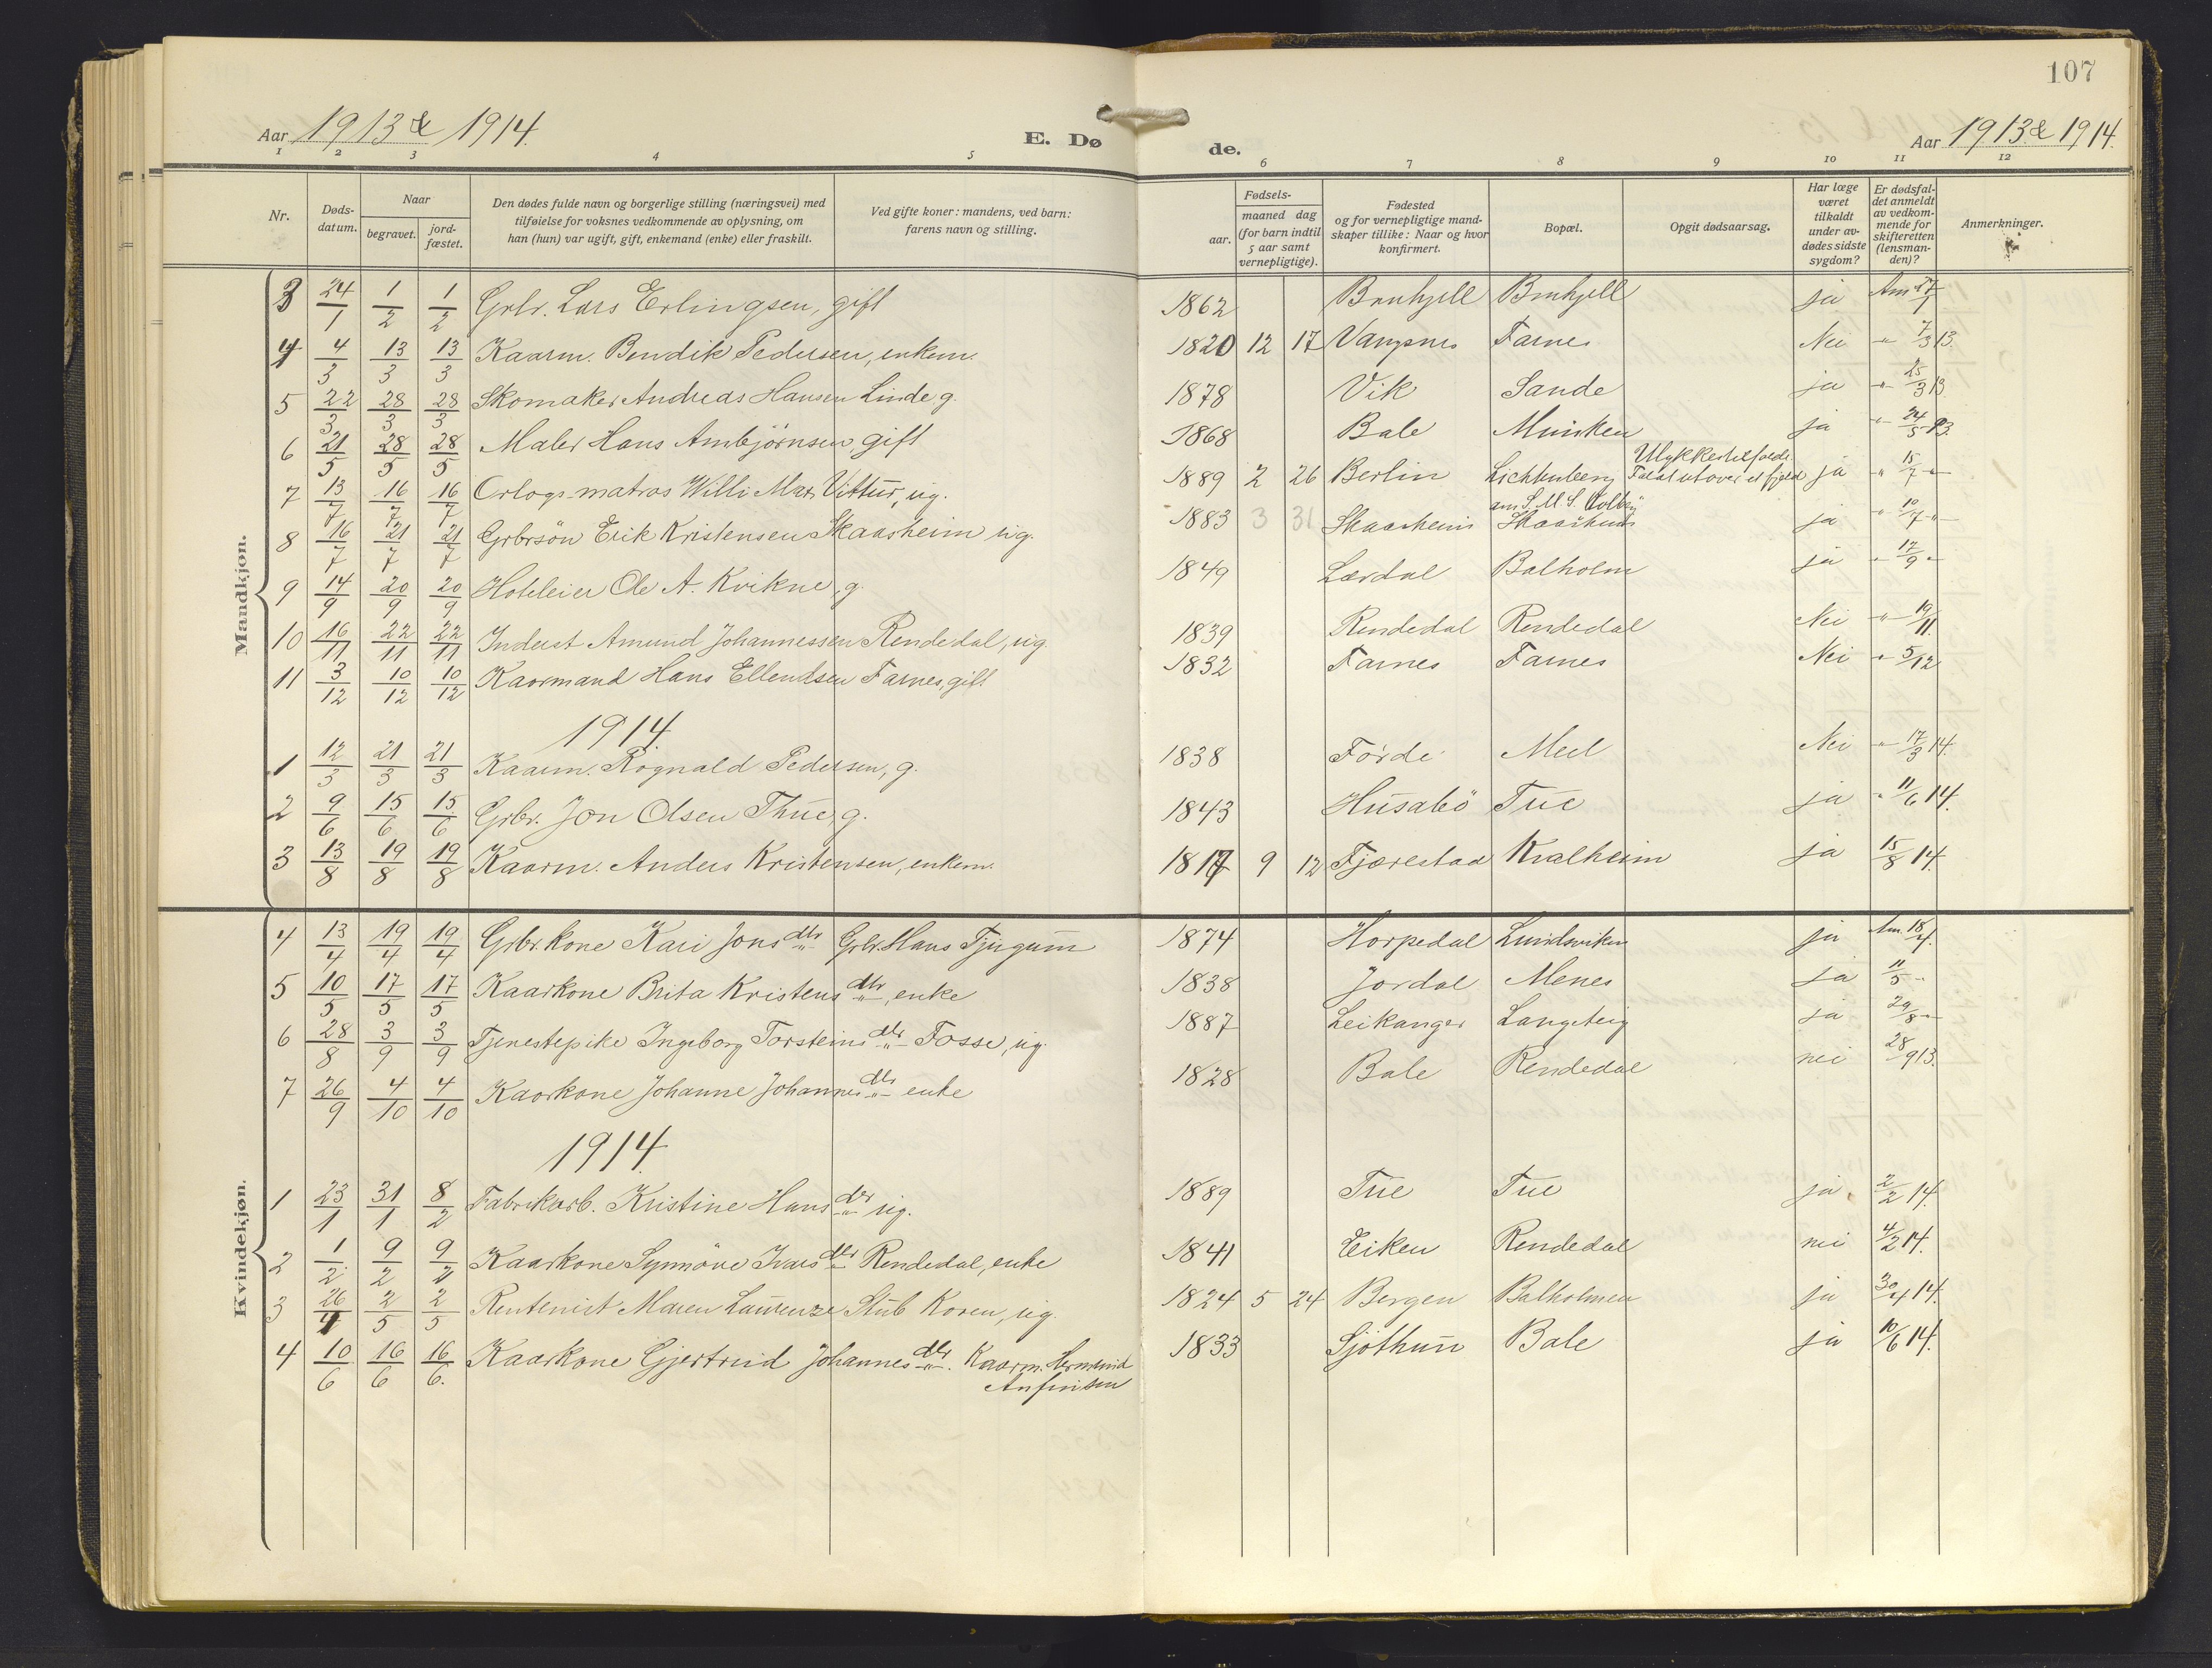 107
Aar 1913 & 1914. E. Dø de. Aar 1913 & 1914.
1 2 3 4 5 6 7 8 9 10 11 12
Nr. Døds-datum. Naar begravet. jord-fæstet. Den dødes fulde navn og borgerlige stilling (næringsvei) med tilføielse for voksnes vedkommende av oplysning, om han (hun) var ugift, gift, enkemand (enke) eller fraskilt. Ved gifte koner: mandens, ved barn: farens navn og stilling. Fødsels- aar. maaned dag (for barn indtil 5 aar samt vernepligtige). Fødested og for vernepligtige mand-skaper tillike: Naar og hvor konfirmert. Bopæl. Opgit dødsaarsag. Har læge været tilkaldt under av-dødes sidste sygdom? Er dødsfal-det anmeldt av vedkom-mende for skifteretten (lensman-den)? Anmerkninger.
Mandkjøn.
3 24/1 1/2 1/2 Grbr. Lars Erlingsen, gift 1862 ja Am 27/1
4 4/3 13/3 13/3 Kaarm. Bendik Pedersen, enkem. 1820 12 17 Vangsnes Farnes Nei -"- 7/3 13.
5 22/3 28/3 28/3 Skomaker Andreas Hansen Linde g. 1878 Vik Sande ja -"- 25/3 13
6 21/5 28/5 28/5 Maler Hans Ambjörnsen, gift 1868 Bale Munken ja -"- 24/5 13.
7 13/7 16/7 16/7 Orlogs-matros Willi Max Vittur, ug. 1889 2 26 Berlin Lichtenberg am S.M.S. Ulykkestilfælde. Faldt utover et fjeld ja -"- 15/7 -"-
8 16/7 21/7 21/7 Grbrsön Erik Kristensen Skaasheim ug. 1883 3 31 Skaasheim Skaasheim ja -"- 10/7 -"-
9 14/9 20/9 20/9 Hoteleier Ole A. Kvikne, g. 1849 Lærdal Balholm ja -"- 17/9 -"-
10 16/11 22/11 22/11 Inderst Amund Johannessen Rendedal, ug. 1839 Rendedal Rendedal Nei -"- 19/11.
11 3/12 10/12 10/12 Kaarmand Hans Ellendsen Farnes, gift 1832 Farnes Farnes Nei -"- 5/12
1914
1 12/3 21/3 21/3 Kaarm. Rognald Pedersen, g. 1838 Förde Meel Nei -"- 17/3 14.
2 9/6 15/6 15/6 Grbr. Jon Olsen Thue, g. 1843 Husabö Tue ja -"- 11/6 14.
3 13/8 19/8 19/8 Kaarm. Anders Kristensen, enkem. 1817 9 12 Fjærestad Kvalheim ja 15/8 14.
Kvindekjøn.
4 13/4 19/4 19/4 Grbr. kone Kari Jonsdtr Grbr. Hans Tjugum 1874 Horpedal Lundeviken ja Am. 18/4.
5 10/5 17/5 17/5 Kaarkone Brita Kristensdtr, enke 1838 Jordal Menes ja 11/5 -"-
6 28/8 3/9 3/9 Tjenestepike Ingeborg Torsteinsdtr Fosse, ug. 1887 Leikanger Langeteig ja 29/8 -"-
7 26/9 4/10 4/10 Kaarkone Johanne Johannesdtr enke 1828 Bale Rendedal nei 28/9 13.
1914.
1 23/1 31/1 8/2 Fabrikarb. Kristine Hansdtr ug. 1889 Tue Tue ja 2/2 14.
2 1/2 9/2 9/2 Kaarkone Synnöve Ivarsdtr Rendedal, enke 1841 Eiken Rendedal nei 4/2 14.
3 26/4 2/5 2/5 Rentenist Maren Laurenze Stub Koren, ug. 1824 5 24 Bergen Balholmen ja 30/4 14.
4 10/6 16/6 16/6. Kaarkone Gjertrud Johannesdtr. Kaarm. Hermund Anfinsen 1833 Sjöthun Bale ja 10/6 14.